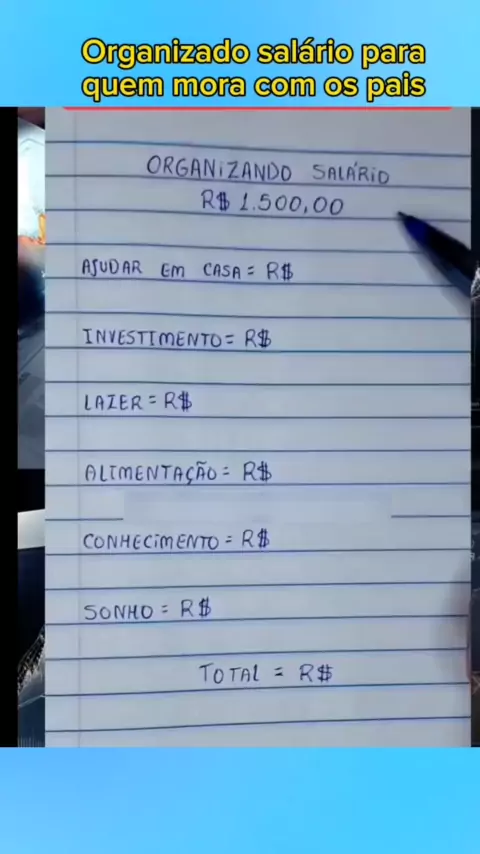 Organizado salário para
quem mora com os pais
ORGANIZANDO SALÁRIO
R$ 1.500,00
AJUDAR EM CASA = R$
INVESTIMENTO = R$
LAZER = R$
ALIMENTAÇÃO = R$
CONHECIMENTO = R$
SONHO = R$
TOTAL = R$